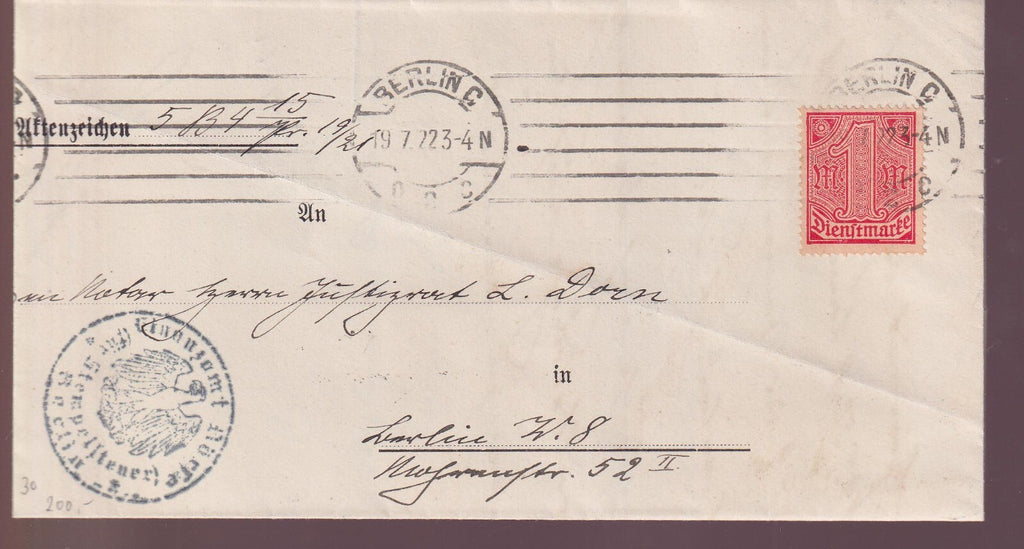 BERLIN C
19.7.22 3-4 N
BERLIN C
22 3-4 N
C
Aktenzeichen 5 B4 15
Pr. 19/21
1
M M
Dienstmarke
An
en Notar Herrn Justizrat L. Dorn
in
Berlin W. 8
Mohrenstr. 52 II
Finanzamt
(für Stempelsteuer)
Berlin
30
200,-